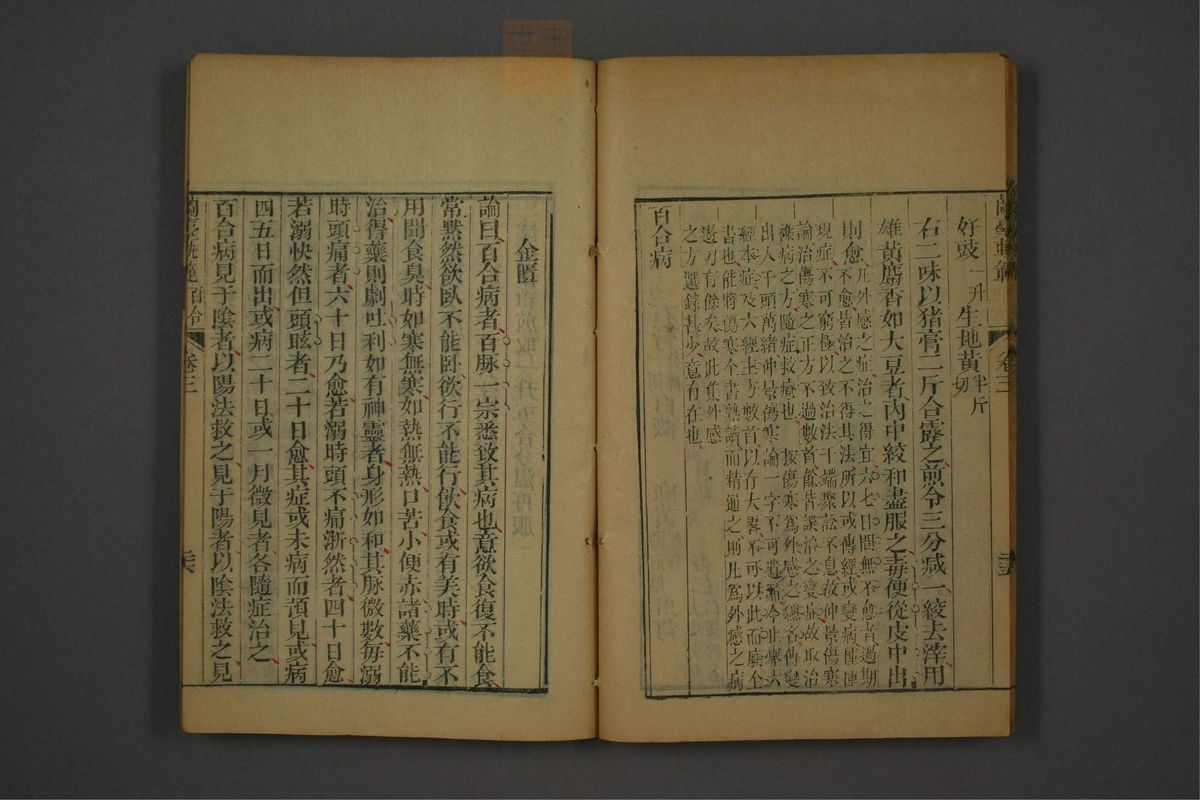 好豉一升生地黃半斤切
右二味以猪膏二斤合露之煎令三分減一絞去滓用
雄黃麝香如大豆者內中絞和盡服之毒便從皮中出
則愈凡外感之症治之得宜六七日間無不愈者過期
不愈皆治之不得其法所以或傳經或變病種種
現症不可窮極以致治法千端聚訟不息故仲景傷寒
論治傷寒之正方不過數首餘皆誤治之變症故取治
襍病之方隨症救療也 按傷寒爲外感之總名傳變
出入千頭萬緒仲景傷寒論一字不可遺漏今止舉六
經本症及六經主方數首以存大畧不可以此而廢全
書也能將傷寒全書熟讀而精通之則凡爲外感之病
遊刃有餘矣故此集外感
之方選錄甚少意有在也
百合病
蘭臺軌範 卷三
金匱
論曰百合病者百脉一宗悉致其病也意欲食復不能食
常黙然欲臥不能臥欲行不能行飲食或有美時或有不
用聞食臭時如寒無寒如熱無熱口苦小便赤諸藥不能
治得藥則劇吐利如有神靈者身形如和其脉微數每溺
時頭痛者六十日乃愈若溺時頭不痛淅然者四十日愈
若溺快然但頭眩者二十日愈其症或未病而預見或病
四五日而出或病二十日或一月微見者各隨症治之
百合病見于陰者以陽法救之見于陽者以陰法救之見
蘭臺軌範 百合 卷三 六